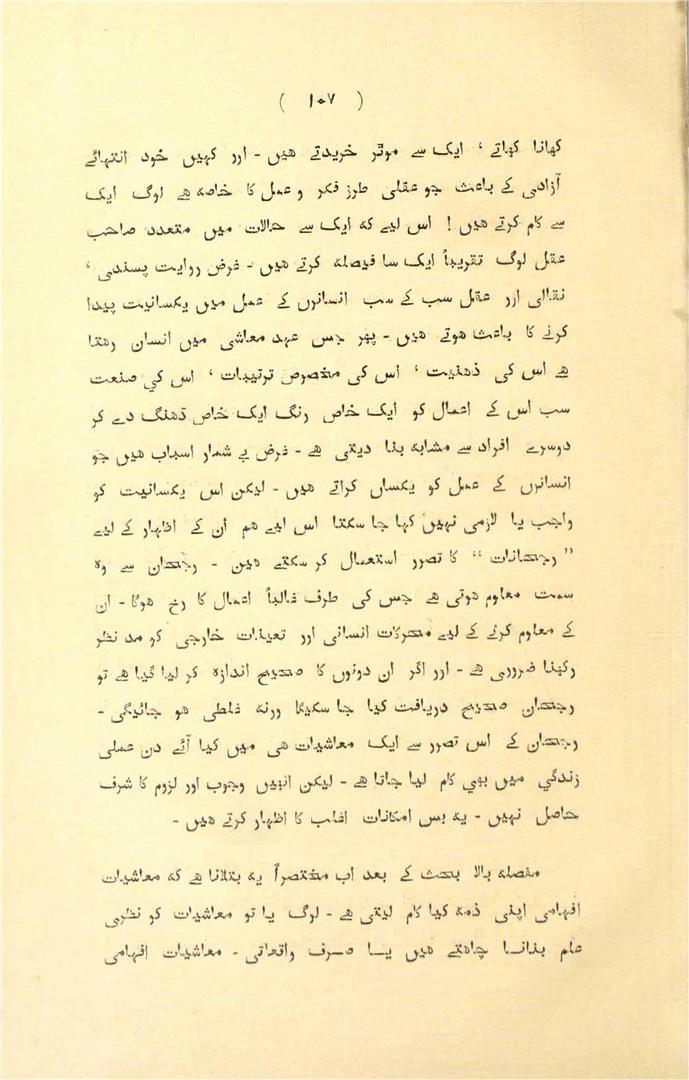 ( ۱۰۷ )
کھانا کھاتے ' ایک سے موٹر خریدتے ھیں - اور کہیں خود انتہائے
آزادی کے باعث جو عقلی طرز فکر و عمل کا خاصہ ھے لوگ ایک
سے کام کرتے ھیں ! اس لیے کہ ایک سے حالات میں متعدد صاحب
عقل لوگ تقریباً ایک سا فیصلہ کرتے ھیں - غرض روایت پسندی '
نقالی اور عقل سب کے سب انسانوں کے عمل میں یکسانیت پیدا
کرنے کا باعث ھوتے ھیں - پھر جس عہد معاشی میں انسان رھتا
ھے اس کی ذھنیت ' اس کی مخصوص ترتیبات ' اس کي صنعت
سب اس کے اعمال کو ایک خاص رنگ ایک خاص ڈھنگ دے کر
دوسرے افراد سے مشابہ بنا دیتی ھے - غرض بے شمار اسباب ھیں جو
انسانوں کے عمل کو یکساں کراتے ھیں - لیکن اس یکسانیت کو
واجب یا لازمی نہیں کہا جا سکتا اس لیے ھم ان کے اظہار کے لیے
” رجحانات “ کا تصور استعمال کر سکتے ھیں - رجحان سے وہ
سمت معلوم ھوتی ھے جس کی طرف غالباً اعمال کا رخ ھوگا - ان
کے معلوم کرنے کے لیے محرکات انسانی اور تعینات خارجی کو مد نظر
رکھنا ضروری ھے - اور اگر ان دونوں کا صحیح اندازہ کر لیا گیا ھے تو
رجحان صحیح دریافت کیا جا سکیگا ورنہ غلطی ھو جائیگی -
رجحان کے اس تصور سے ایک معاشیات ھی میں کیا آئے دن عملی
زندگي میں بھي کام لیا جاتا ھے - لیکن انہیں وجوب اور لزوم کا شرف
حاصل نہیں - یہ بس امکانات اغلب کا اظہار کرتے ھیں -
مفصلہ بالا بحث کے بعد اب مختصراً یہ بتلانا ھے کہ معاشیات
افہامی اپنی ذمہ کیا کام لیتی ھے - لوگ یا تو معاشیات کو نظری
علم بنانا چاھتے ھیں یا صرف واقعاتی - معاشیات افہامی